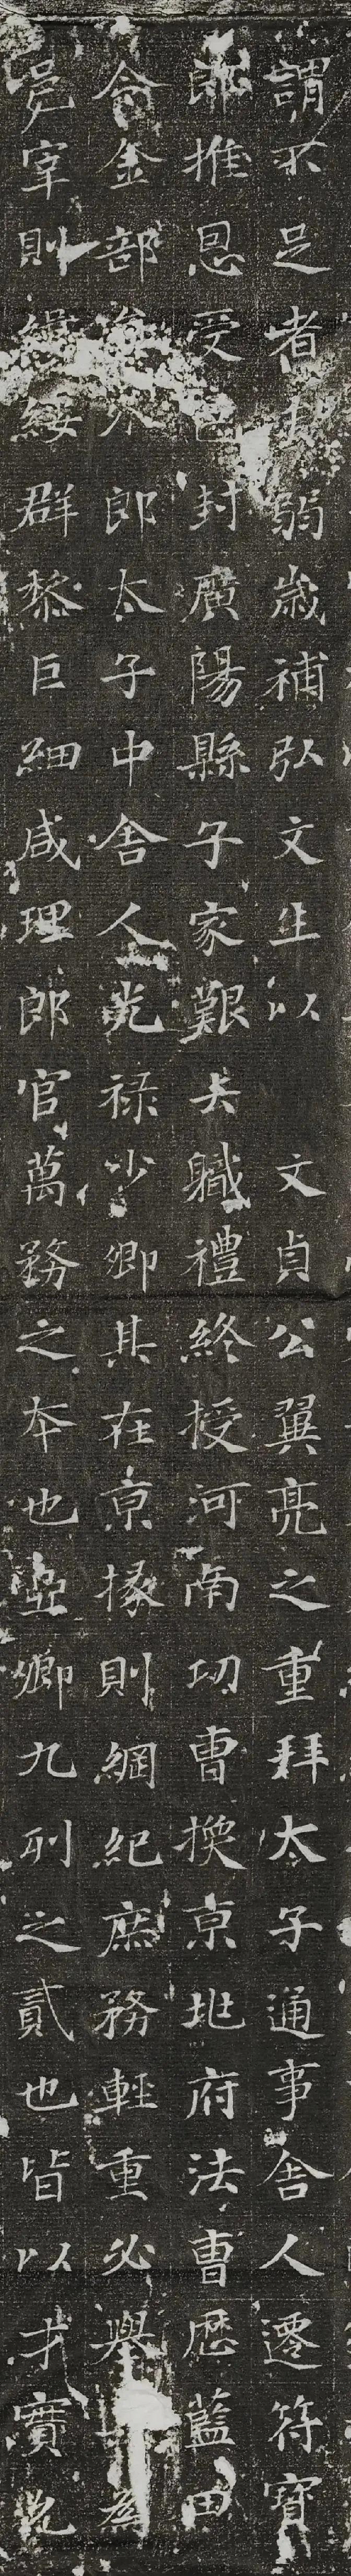 謂不足者弱歲補弘文生以文貞公翼亮之重拜太子通事舍人遷符寶
郎推恩受封廣陽縣子家艱去職禮終授河南功曹換京地府法曹歷藍田
令金部員外郎太子中舍人光祿少卿其在京掾則綱紀庶務輕重必舉為
邑宰則緝綏群黎巨細咸理郎官萬務之本也亞卿九列之貳也皆以才實光